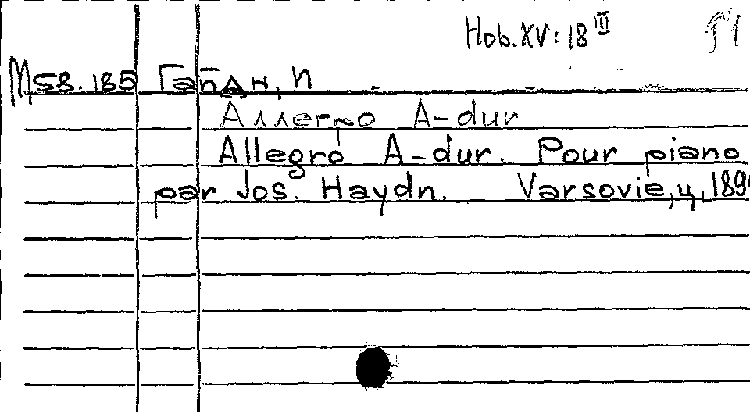 Hob. XV: 18 III
M 58.185 Гайдн, И
Аллегро A-dur
Allegro A-dur. Pour piano
par Jos. Haydn. Varsovie, ц. 189